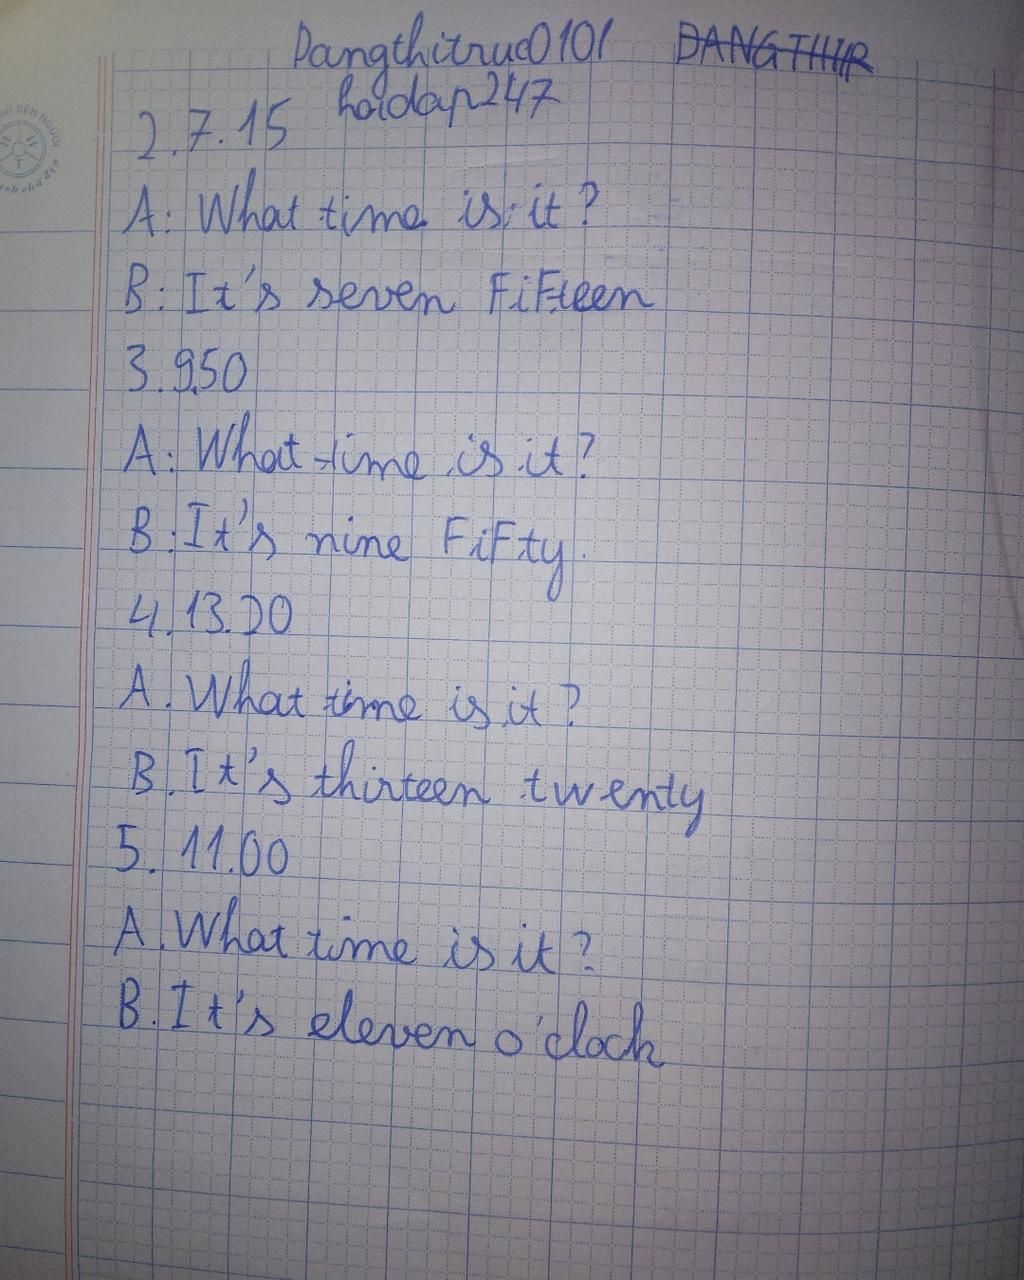 Dangthitruc0101 DANGTHIR
hoidap247
2.7.15
A: What time is it?
B: It's seven FiFteen
3.9.50
A: What time is it?
B: It's nine FiFty.
4.13.20
A. What time is it?
B. It's thirteen twenty
5. 11.00
A. What time is it?
B. It's eleven o'clock